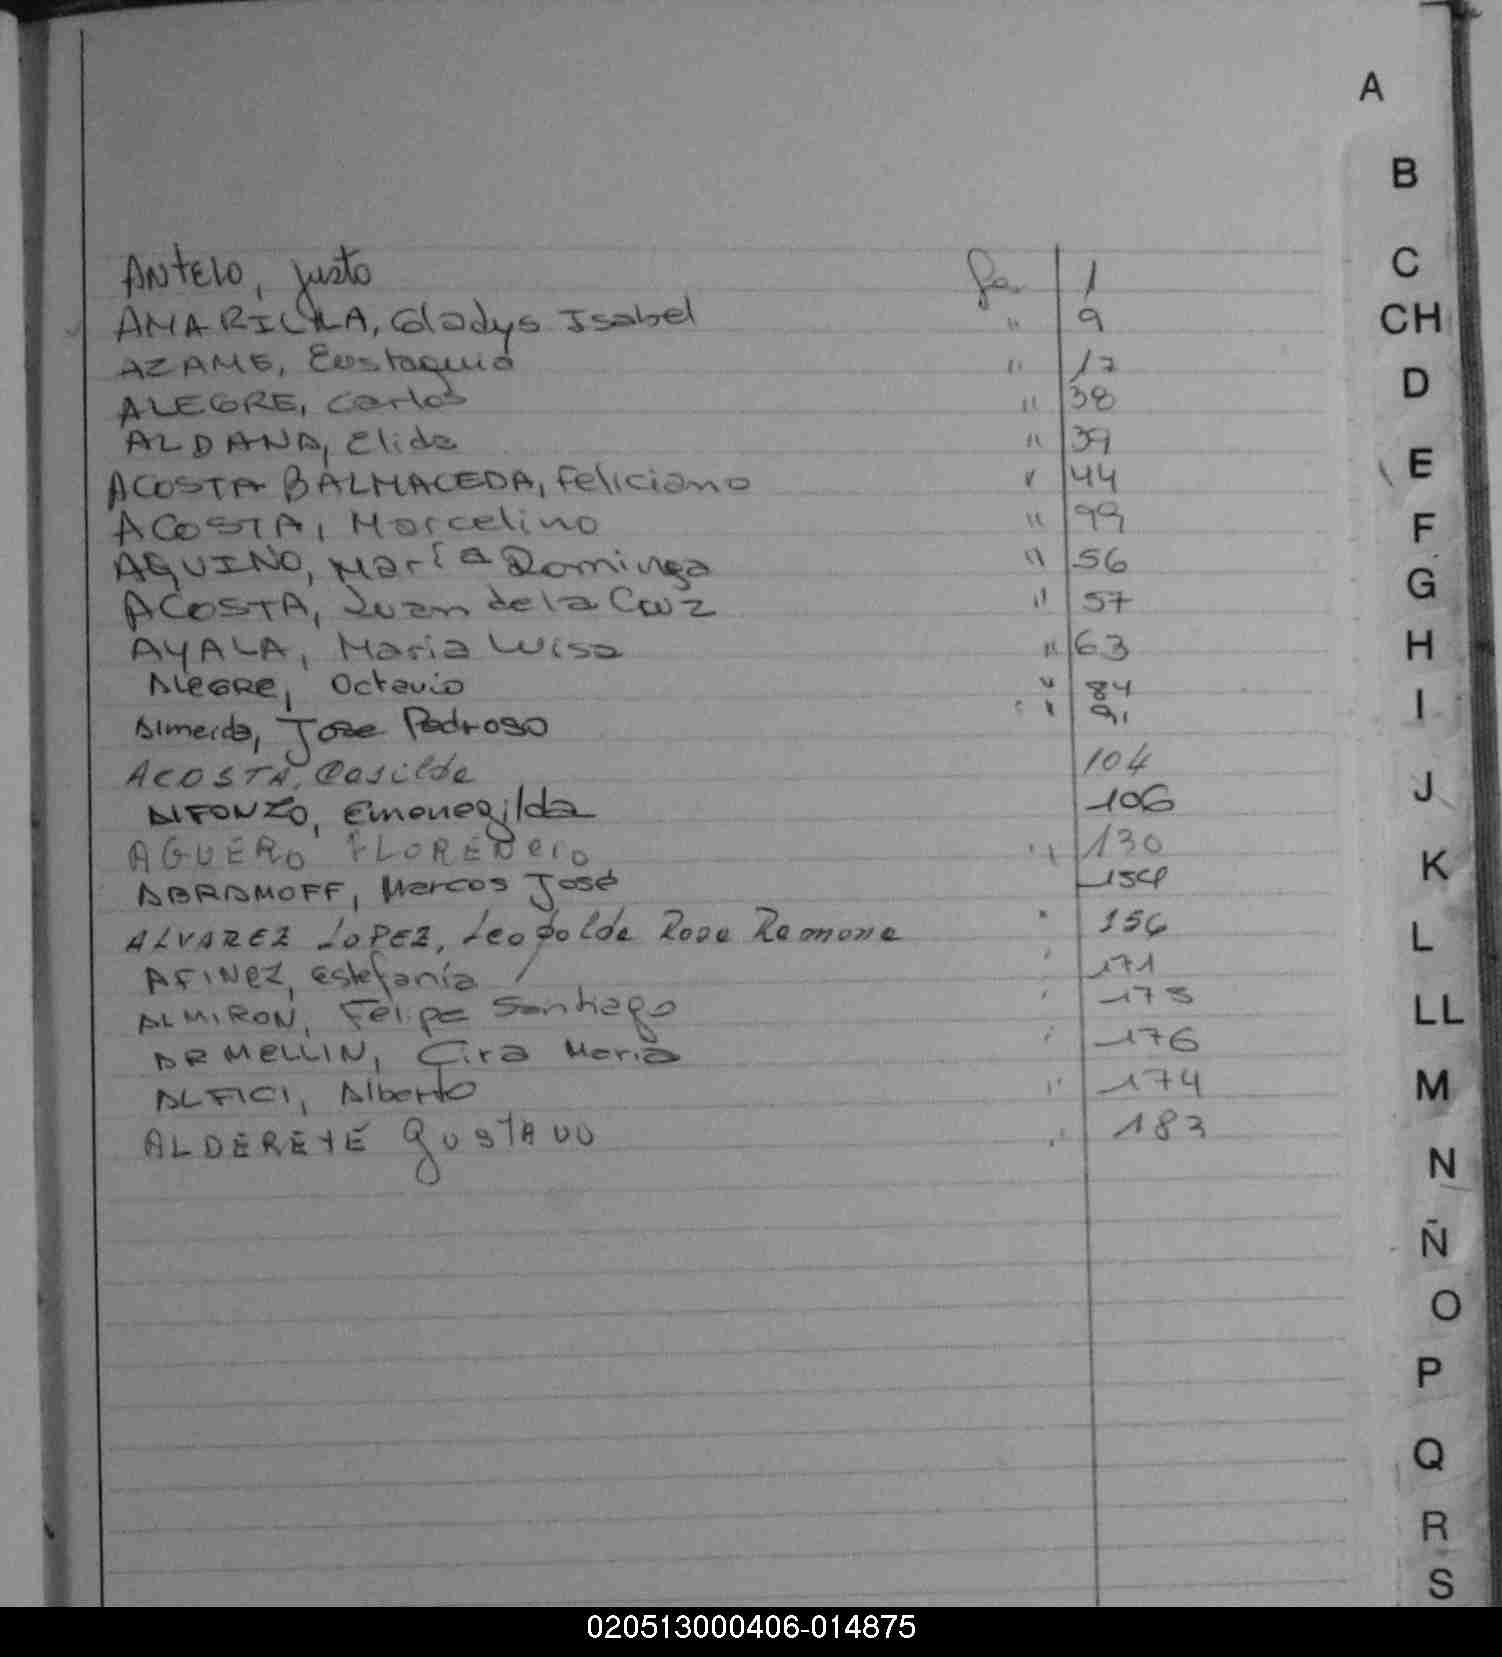 A
B
C
CH
D
E
F
G
H
I
J
K
L
LL
M
N
Ñ
O
P
Q
R
S
ANTELO, Justo 1
AMARILLA, Gladys Isabel " 9
AZAME, Eustaquio " 17
ALEGRE, Carlos " 38
ALDANA, Elida " 39
ACOSTA BALMACEDA, Feliciano " 44
ACOSTA, Marcelino " 99
AQUINO, María Dominga " 56
ACOSTA, Juan de la Cruz " 57
AYALA, Maria Luisa " 63
ALEGRE, Octavio " 84
Almeida, Jose Pedroso " 91
ACOSTA, Casilda 104
ALFONZO, Emenegilda 106
AGUERO FLORENCIO " 130
ABRAMOFF, Marcos José 154
ALVAREZ LOPEZ, Leopolda Rosa Ramona " 156
AFINEZ, Estefanía " 171
ALMIRON, Felipe Santiago " 175
ARMELLIN, Cira Maria " 176
ALFICI, Alberto " 174
ALDERETE GUSTAVO " 183
020513000406-014875